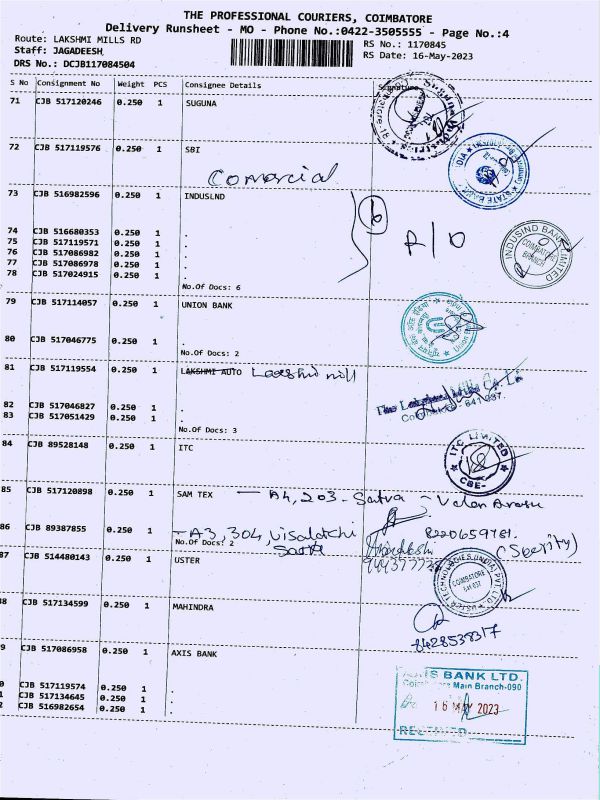 THE PROFESSIONAL COURIERS, COIMBATORE
Delivery Runsheet - MO - Phone No.:0422-3505555 - Page No.:4
Route: LAKSHMI MILLS RD
RS No.: 1170845
Staff: JAGADEESH,
RS Date: 16-May-2023
DRS No.: DCJB117084504
S No Consignment No Weight PCS Consignee Details Signature
71 CJB 517120246 0.250 1 SUGUNA
72 CJB 517119576 0.250 1 SBI
STATE BANK
Comercial
73 CJB 516982596 0.250 1 INDUSLND
6
R/O
INDUSIND BANK LIMITED
COIMBATORE
BRANCH
74 CJB 516680353 0.250 1 .
75 CJB 517119571 0.250 1 .
76 CJB 517086982 0.250 1 .
77 CJB 517086978 0.250 1 .
78 CJB 517024915 0.250 1 .
No.Of Docs: 6
79 CJB 517114057 0.250 1 UNION BANK
80 CJB 517046775 0.250 1 .
No.Of Docs: 2
81 CJB 517119554 0.250 1 LAKSHMI AUTO Lakshmi mill
The Lakshmi Mills Co. Ltd
Coimbatore 641 037.
82 CJB 517046827 0.250 1 .
83 CJB 517051429 0.250 1 .
No.Of Docs: 3
84 CJB 89528148 0.250 1 ITC
ITC LIMITED
CBE-
85 CJB 517120898 0.250 1 SAM TEX - A4, 203 - Satva -
86 CJB 89387855 0.250 1 . - A3, 304, Visalatchi
8220659781.
No.Of Docs: 2
(Sberity)
87 CJB 514480143 1 USTER
USTER TECHNOLOGIES (INDIA) PVT LTD
COIMBATORE
641 037
8 CJB 517134599 0.250 1 MAHINDRA
8428538317
9 CJB 517086958 0.250 1 AXIS BANK
AXIS BANK LTD.
Coimbatore Main Branch-090
16 MAY 2023
RECEIVED
0 CJB 517119574 0.250 1 .
1 CJB 517134645 0.250 1 .
2 CJB 516982654 0.250 1 .